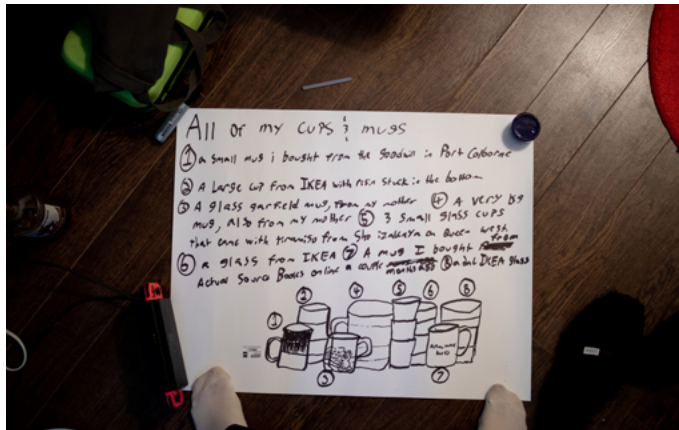 All of my cups & mugs
① a small mug i bought from the goodwill in Port Colborne
② A Large cup from IKEA with resin stuck in the bottom
③ A glass garfield mug, from my mother ④ A very big
mug, also from my mother ⑤ 3 small glass cups
that came with tiramisu from Sho Izakaya on Queen West
⑥ a glass from IKEA ⑦ A mug I bought from
Actual Source Books online a couple ⑧ a tall IKEA glass
② ④ ⑤ ⑥ ⑧
①
③ ⑦